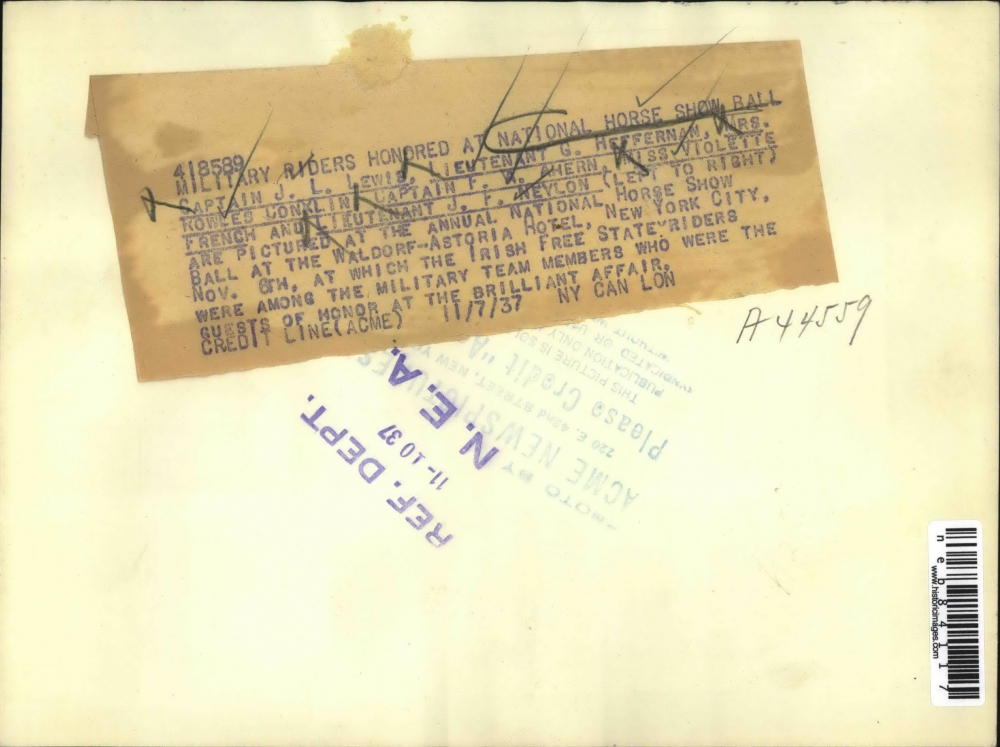 418589
MILITARY RIDERS HONORED AT NATIONAL HORSE SHOW BALL
CAPTAIN J. L. LEWIS, LIEUTENANT G. HEFFERNAN, MRS.
CONKLIN, CAPTAIN F. A. AHERN, MISS VIOLETTE
FRENCH AND LIEUTENANT J. F. NEYLON (LEFT TO RIGHT)
ARE PICTURED AT THE ANNUAL NATIONAL HORSE SHOW
BALL AT THE WALDORF-ASTORIA HOTEL, NEW YORK CITY,
NOV. 6TH, AT WHICH THE IRISH FREE STATE RIDERS
WERE AMONG THE MILITARY TEAM MEMBERS WHO WERE THE
GUESTS OF HONOR AT THE BRILLIANT AFFAIR.
CREDIT LINE (ACME) 11/7/37 NY CAN LON
A44559
REF. DEPT.
11-10 37
N. E. A.
PHOTO BY
ACME NEWSPICTURES
220 E. 42nd STREET, NEW
Please Credit "A
THIS PICTURE IS SOL
PUBLICATION ONLY
SYNDICATED OR U
neb84117
www.historicimages.com